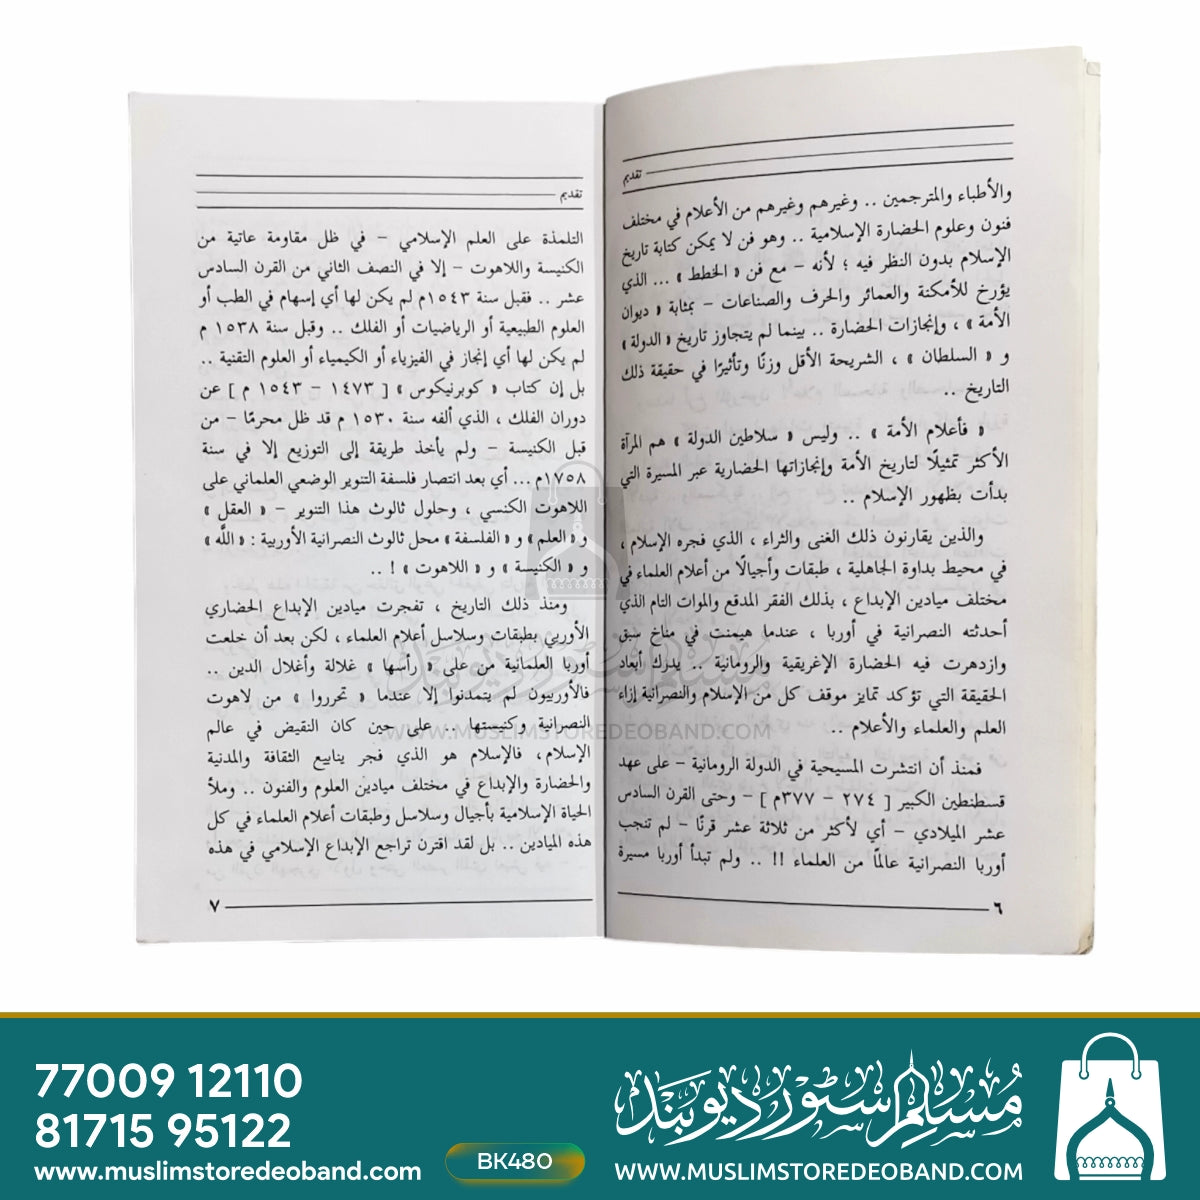 تقديم
والأطباء والمترجمين .. وغيرهم وغيرهم من الأعلام في مختلف
فنون وعلوم الحضارة الإسلامية .. وهو فن لا يمكن كتابة تاريخ
الإسلام بدون النظر فيه ؛ لأنه – مع فن « الخطط » ... الذي
يؤرخ للأمكنة والعمائر والحرف والصناعات – بمثابة « ديوان
الأمة » ، وإنجازات الحضارة .. بينما لم يتجاوز تاريخ « الدولة »
و « السلطان » ، الشريحة الأقل وزنًا وتأثيرًا في حقيقة ذلك
التاريخ ..
« فأعلام الأمة » .. وليس « سلاطين الدولة » هم المرآة
الأكثر تمثيلًا لتاريخ الأمة وإنجازاتها الحضارية عبر المسيرة التي
بدأت بظهور الإسلام ..
والذين يقارنون ذلك الغنى والثراء ، الذي فجره الإسلام ،
في محيط بداوة الجاهلية ، طبقات وأجيالًا من أعلام العلماء في
مختلف ميادين الإبداع ، بذلك الفقر المدقع والموات التام الذي
أحدثته النصرانية في أوربا ، عندما هيمنت في مناخ سبق
وازدهرت فيه الحضارة الإغريقية والرومانية .. يدرك أبعاد
الحقيقة التي تؤكد تمايز موقف كل من الإسلام والنصرانية إزاء
العلم والعلماء والأعلام ..
فمنذ أن انتشرت المسيحية في الدولة الرومانية – على عهد
قسطنطين الكبير [ ٢٧٤ – ٣٧٧م ] – وحتى القرن السادس
عشر الميلادي – أي لأكثر من ثلاثة عشر قرنًا – لم تنجب
أوربا النصرانية عالمًا من العلماء !! .. ولم تبدأ أوربا مسيرة
٦
تقديم
التلمذة على العلم الإسلامي – في ظل مقاومة عاتية من
الكنيسة واللاهوت – إلا في النصف الثاني من القرن السادس
عشر .. فقبل سنة ١٥٤٣م لم يكن لها أي إسهام في الطب أو
العلوم الطبيعية أو الرياضيات أو الفلك .. وقبل سنة ١٥٣٨ م
لم يكن لها أي إنجاز في الفيزياء أو الكيمياء أو العلوم التقنية ..
بل إن كتاب « كوبرنيكوس » [ ١٤٧٣ – ١٥٤٣ م ] عن
دوران الفلك ، الذي ألفه سنة ١٥٣٠ م قد ظل محرمًا – من
قبل الكنيسة – ولم يأخذ طريقة إلى التوزيع إلا في سنة
١٧٥٨م ... أي بعد انتصار فلسفة التنوير الوضعي العلماني على
اللاهوت الكنسي ، وحلول ثالوث هذا التنوير – « العقل »
و « العلم » و « الفلسفة » محل ثالوث النصرانية الأوربية : « اللَّه »
و « الكنيسة » و « اللاهوت » ! ..
ومنذ ذلك التاريخ ، تفجرت ميادين الإبداع الحضاري
الأوربي بطبقات وسلاسل أعلام العلماء ، لكن بعد أن خلعت
أوربا العلمانية من على « رأسها » غلالة وأغلال الدين ..
فالأوربيون لم يتمدنوا إلا عندما « تحرروا » من لاهوت
النصرانية وكنيستها .. على حين كان النقيض في عالم
الإسلام، فالإسلام هو الذي فجر ينابيع الثقافة والمدنية
والحضارة والإبداع في مختلف ميادين العلوم والفنون .. وملأ
الحياة الإسلامية بأجيال وسلاسل وطبقات أعلام العلماء في كل
هذه الميادين .. بل لقد اقترن تراجع الإبداع الإسلامي في هذه
٧
مسلم سٹور دیوبند
WWW.MUSLIMSTOREDEOBAND.COM
77009 12110
81715 95122
www.muslimstoredeoband.com
BK480
مسلم سٹور دیوبند
WWW.MUSLIMSTOREDEOBAND.COM